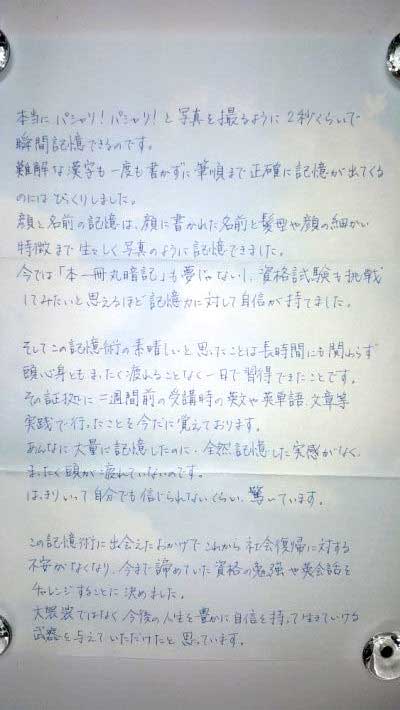 本当に パシャリ！パシャリ！と写真を撮るように2秒くらいで
瞬間記憶できるのです。
難解な漢字も一度も書かずに筆順まで正確に記憶が出てくる
のにはびっくりしました。
顔と名前の記憶は、顔に書かれた名前と髪型や顔の細かい
特徴まで生々しく写真のように記憶できました。
今では「本一冊丸暗記」も夢じゃないし、資格試験も挑戦
してみたいと思えるほど記憶力に対して自信が持てました。
そしてこの記憶術の素晴しいと思ったことは長時間にも関わらず
頭も心身ともまったく疲れることなく一日で習得できたことです。
その証拠に二週間前の受講時の英文や英単語、文章等
実践で行ったことを今だに覚えております。
あんなに大量に記憶したのに、全然記憶した実感がなく、
まったく頭が疲れていないのです。
はっきりいって自分でも信じられないくらい、驚いています。
この記憶術に出会えたおかげでこれから社会復帰に対する
不安がなくなり、今まで諦めていた資格の勉強や英会話を
チャレンジすることに決めました。
大袈裟ではなく今後の人生を豊かに自信を持って生きていける
武器を与えていただけたと思っています。